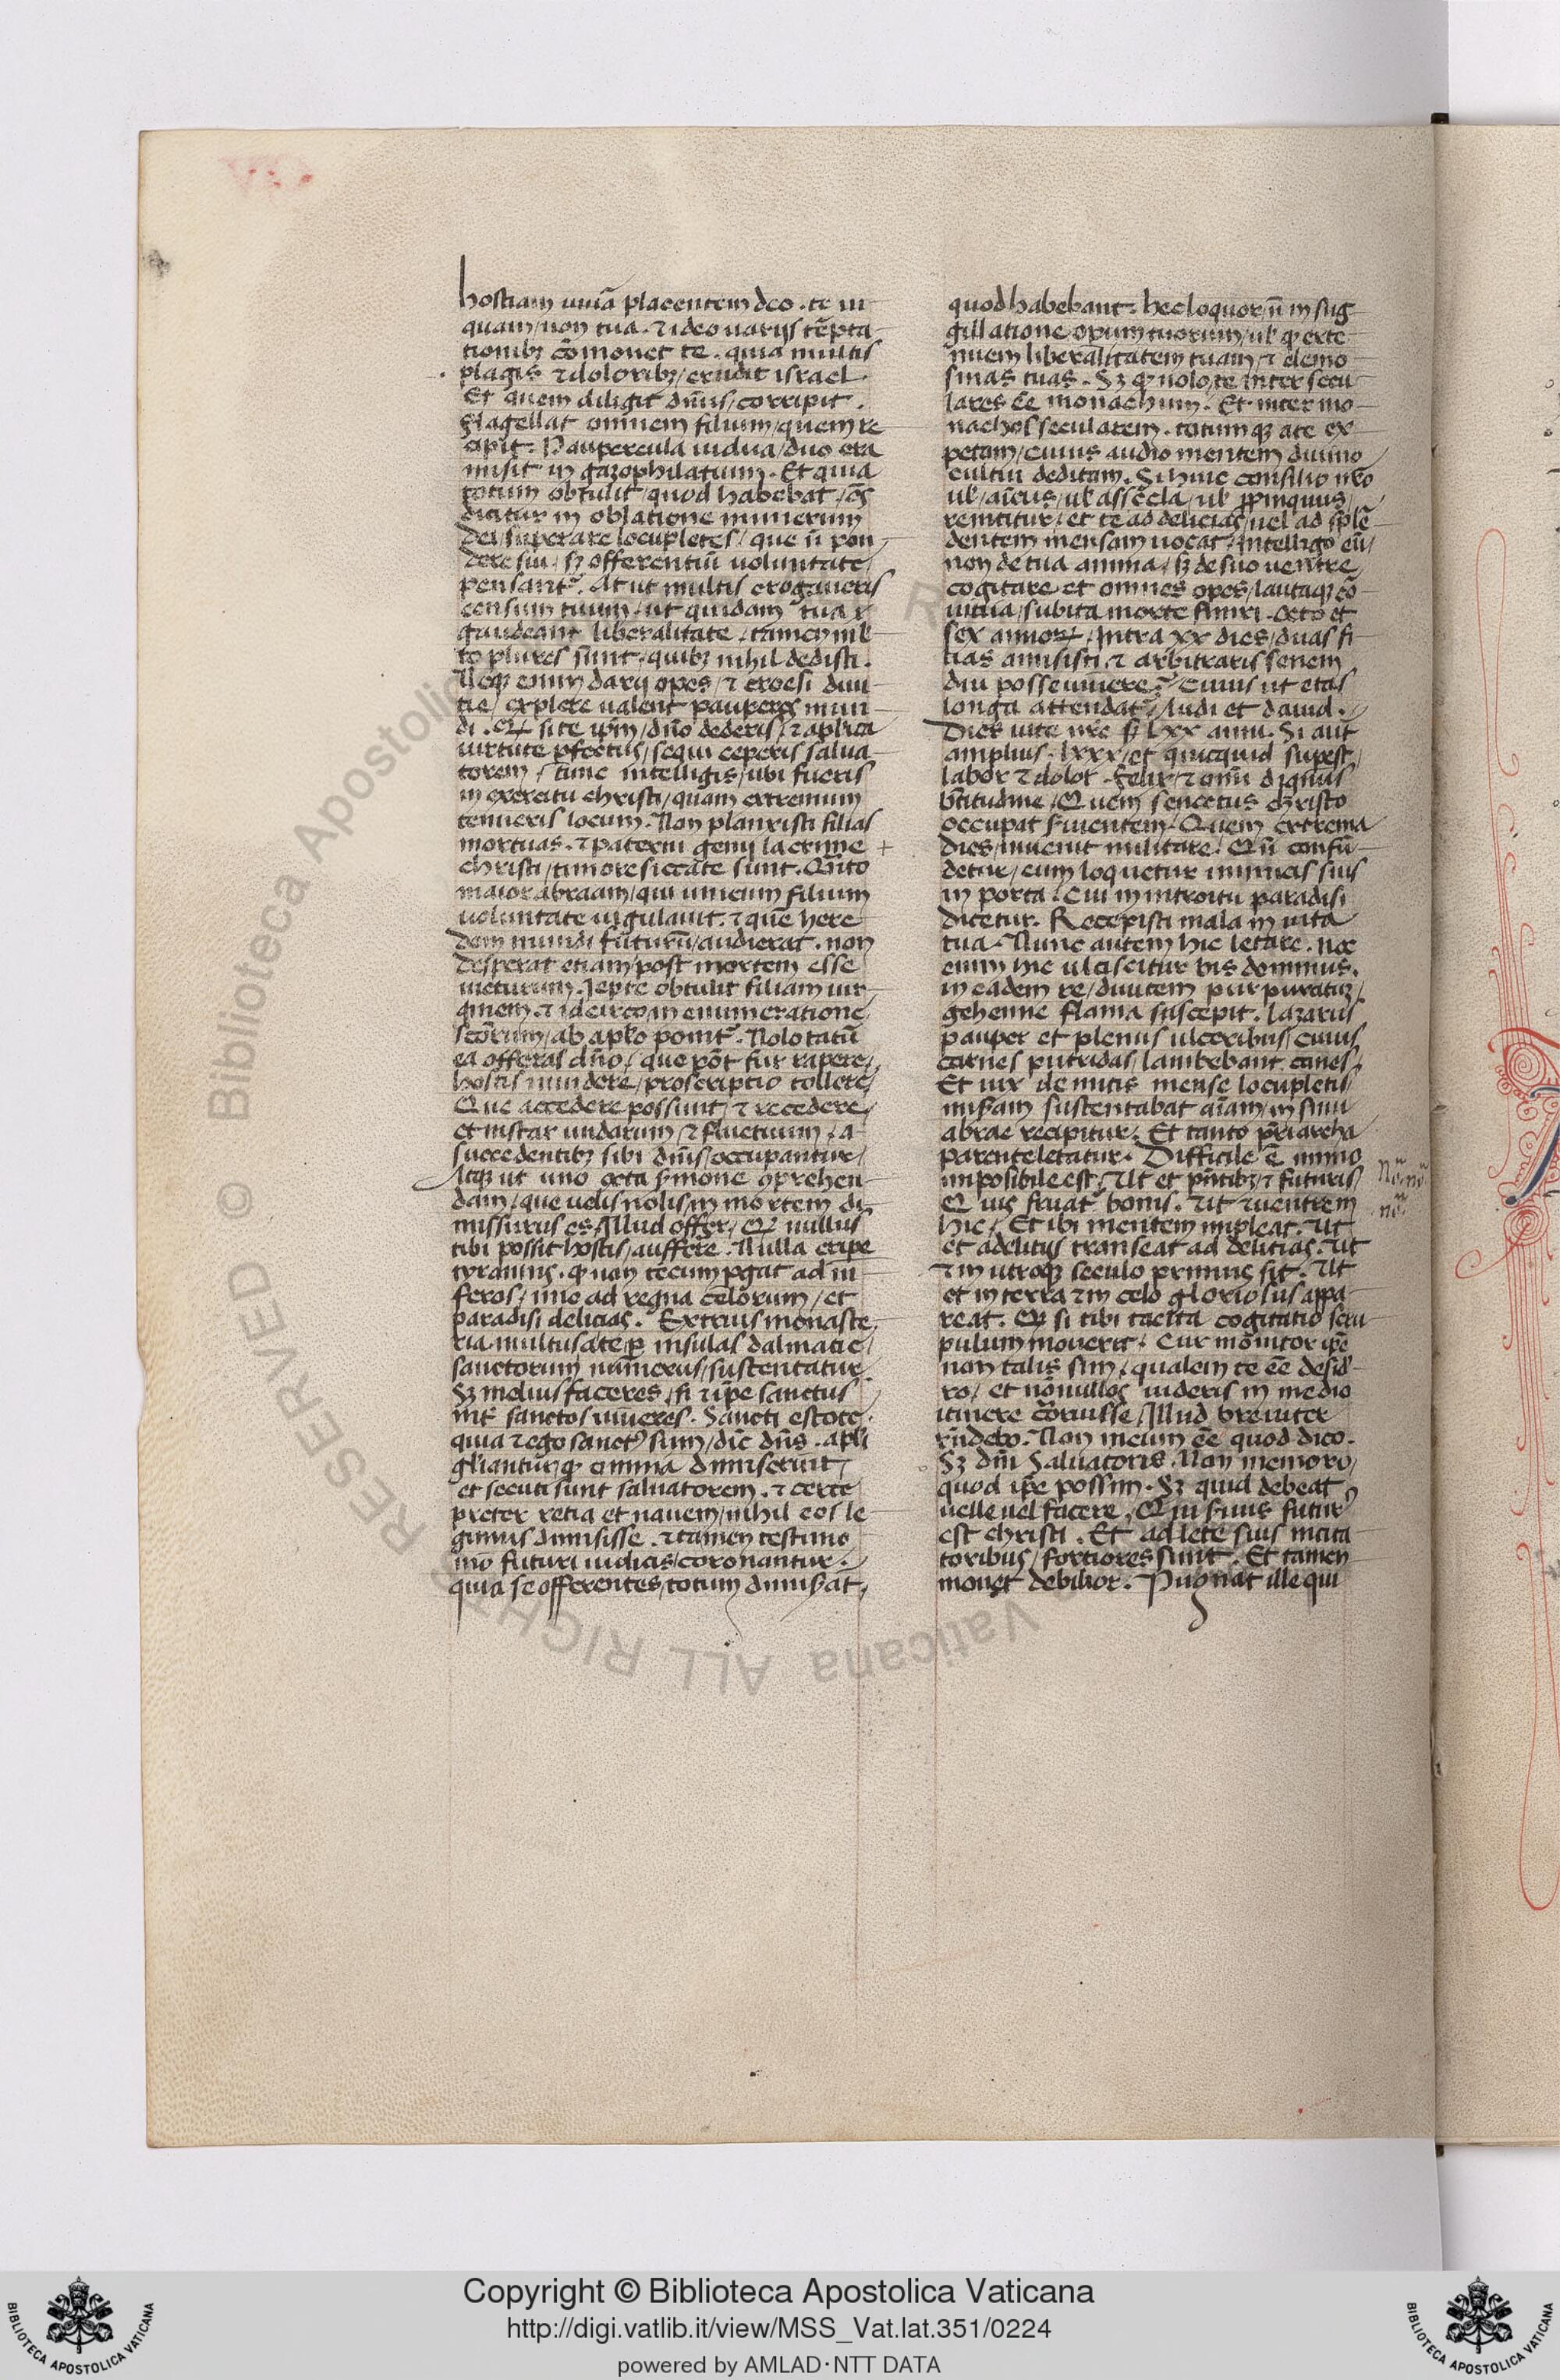 hostiam uiuā placentem deo . te in
quam / non tua . ⁊ ideo uarijs tēpta
tionibꝫ cōmonet te . quia multis
plagis ⁊ doloribꝫ / erudit israel .
Et quem diligit dn̄s / corripit .
flagellat omnem filium / quem re
cipit . Paupercula uidua / duo era
misit in gazophilatium . Et quia
totum obtulit / quod habebat / oēs
dicitur in oblatione munerum
dei / superare locupletes / que n̄ pon
dere sui / sꝫ offerentiū uoluntate
pensant᷑ . At ut multis erogaueris
censum tuum / ut quidam tua
gaudeant liberalitate / tamen ml̄
to plures sunt / quibꝫ nihil dedisti .
Neqꝫ enim darij opes / ⁊ croesi diui
tie / explere ualent pauperes mun
di . Qꝙ si te ip̄m / dn̄o dederis / ⁊ ap̄lica
uirtute ꝑfectus / sequi ceperis salua
torem / tunc intelligis / ubi fueris
in exercitu christi / quam extremum
tenueris locum . Non planxisti filias
mortuas . ⁊ paterni genij lacrime +
christi / timore siccate sunt . Qn̄to
maior abraam / qui unicum filium
uoluntate iugulauit . ⁊ quē here
dem mundi futurū / audierat . non
desperat etiam / post mortem esse
uicturum . Iepte obtulit filiam uir
ginem . ⁊ idcirco / in enumeratione
sctōrum / ab apl̄o ponit᷑ . Nolo tātū
ea offeras dn̄o / que pōt fur rapere /
hostis inuadere / proscriptio tollere /
Que accedere possunt / ⁊ recedere /
et instar undarum / ⁊ fluctuum / a
succedentibꝫ sibi dn̄is / occupantur /
Atqꝫ ut uno octa sꝑmone ꝯprehen
dam / que uelis nolis / in mortem di
missurus es / Illud offer / Qꝙ nullus
tibi possit hostis / aufferre . Nulla eripe
tyrannus . qꝙ non tecum ꝑgat ad in
feros / imo ad regna celorum / et
paradisi delicias . Extruis monaste
ria . multus a te ꝑ insulas dalmatie /
sanctorum numerus / sustentatur
Sꝫ melius faceres / si ⁊ ip̄e sanctus
int᷑ sanctos uiueres . Sancti estote .
quia ⁊ ego sanctꝰ sum / dic̄ dn̄s . apl̄i
gl̄iantur / qꝙ omnia dimiserint /
et secuti sunt saluatorem . ⁊ certe
preter retia et nauem / nihil eos le
gimus dimisisse . ⁊ tamen testimo
nio futuri iudicis / coronantur .
quia se offerentes / totum dimiserāt /
quod habebant . hec loquor / n̄ in sug
gillatione operum tuorum / ul̄ qꝙ exte
nuem liberalitatem tuam / ⁊ elemo
sinas tuas . Sꝫ qꝙ nolo / te inter secu
lares eē monachum . Et inter mo
nachos secularem . totumqꝫ a te ex
petam / cuius audio mentem diuino
cultui deditam . Si huic consilio nr̄o
ul̄ / amicus / ul̄ assēcla / ul̄ ꝓpinquus
renititur / et te ad delicias / uel ad splē
dentem mensam uocat / Intelligo eū /
non de tua anima / sꝫ de suo uentre
cogitare et omnes opes / lautaqꝫ cō
uiuia / subita morte finiri . Octo et
sex annoꝝ / intra xx dies / duas fi
lias amisisti . ⁊ arbitraris senem
diu posse uiuere ? Cuius ut etas
longa attendat᷑ / Audi et dauid .
Dies uite nr̄e sꝫ lxx anni . Si aut̄
amplius . lxxx / et quicquid suꝑest /
labor ⁊ dolor . felix / ⁊ omī dignus
bt̄itudine / Quem senectus christo
occupat seruientem . Quem extrema
dies / inuenit militare / Qui n̄ confū
detur / cum loquetur inimicis suis
in porta . Cui in introitu paradisi
dicetur . Recepisti mala in uita
tua . Nunc autem hic letare . nec
enim hic ulciscitur bis dominus .
in eadem re / diuitem purpuratū /
gehenne flama suscepit . Lazarus
pauper et plenus ulceribus / cuius
carnes putridas / lambebant canes /
Et uix de micis mense locupletis /
miseram sustentabat aīam / in sinu
abrae recipitur . Et tanto pr̄iarcha
parente letatur . Difficile ē immo
imposibile est / Ut et pn̄tibꝫ / ⁊ futuris /
Quis fruat᷑ bonis . Ut ⁊ uentrem
hic / Et ibi mentem impleat . Ut
et a delitijs transeat ad delitias . Ut
⁊ in utroqꝫ seculo primus sit . Ut
et in terra ⁊ in celo gloriosus appa
reat . Qꝙ si tibi tacita cogitatio scru
pulum mouerit . Cur monitor ip̄e
non talis sim / qualem te eē deside
ro / et nōnullos uideris in medio
itinere corruisse / Illud breuiter
rn̄debo . Non meum eē quod dico .
Sꝫ dn̄i Saluatoris . Non memoro /
quod ip̄e possim . Sꝫ quid debeat
uelle uel facere / Qui seruus futurꝰ
est christi . Et adlete suis incita
toribus / fortiores sunt . Et tamen
monet debilior . Pugnat ille qui
Copyright © Biblioteca Apostolica Vaticana
http://digi.vatlib.it/view/MSS_Vat.lat.351/0224
powered by AMLAD·NTT DATA
BIBLIOTECA APOSTOLICA VATICANA
BIBLIOTECA APOSTOLICA VATICANA
© Biblioteca Apostolica Vaticana ALL RIGHTS RESERVED